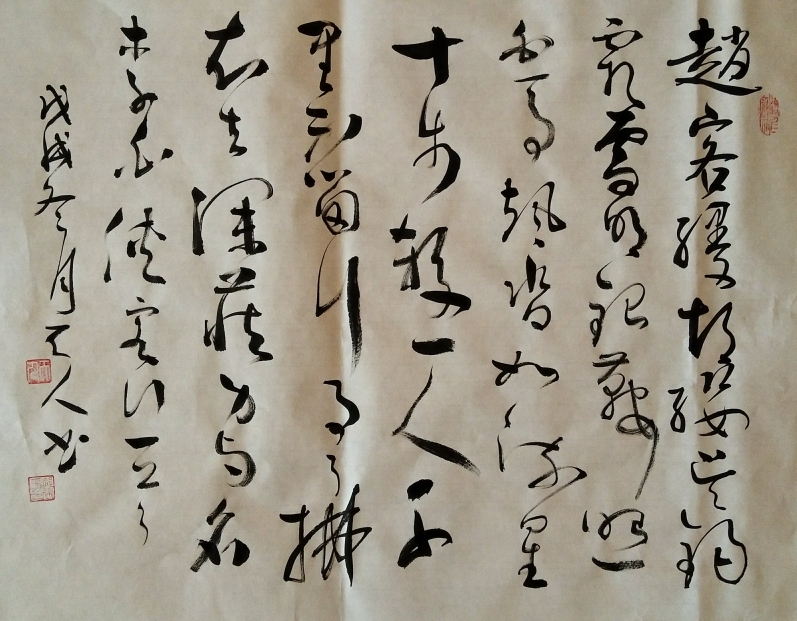 趙客縵胡纓吴鉤
霜雪明銀鞍照
白馬颯沓如流星
十步殺一人千
里不留行事了拂
衣去深藏身与名
李白俠客行
戊戌冬月人书